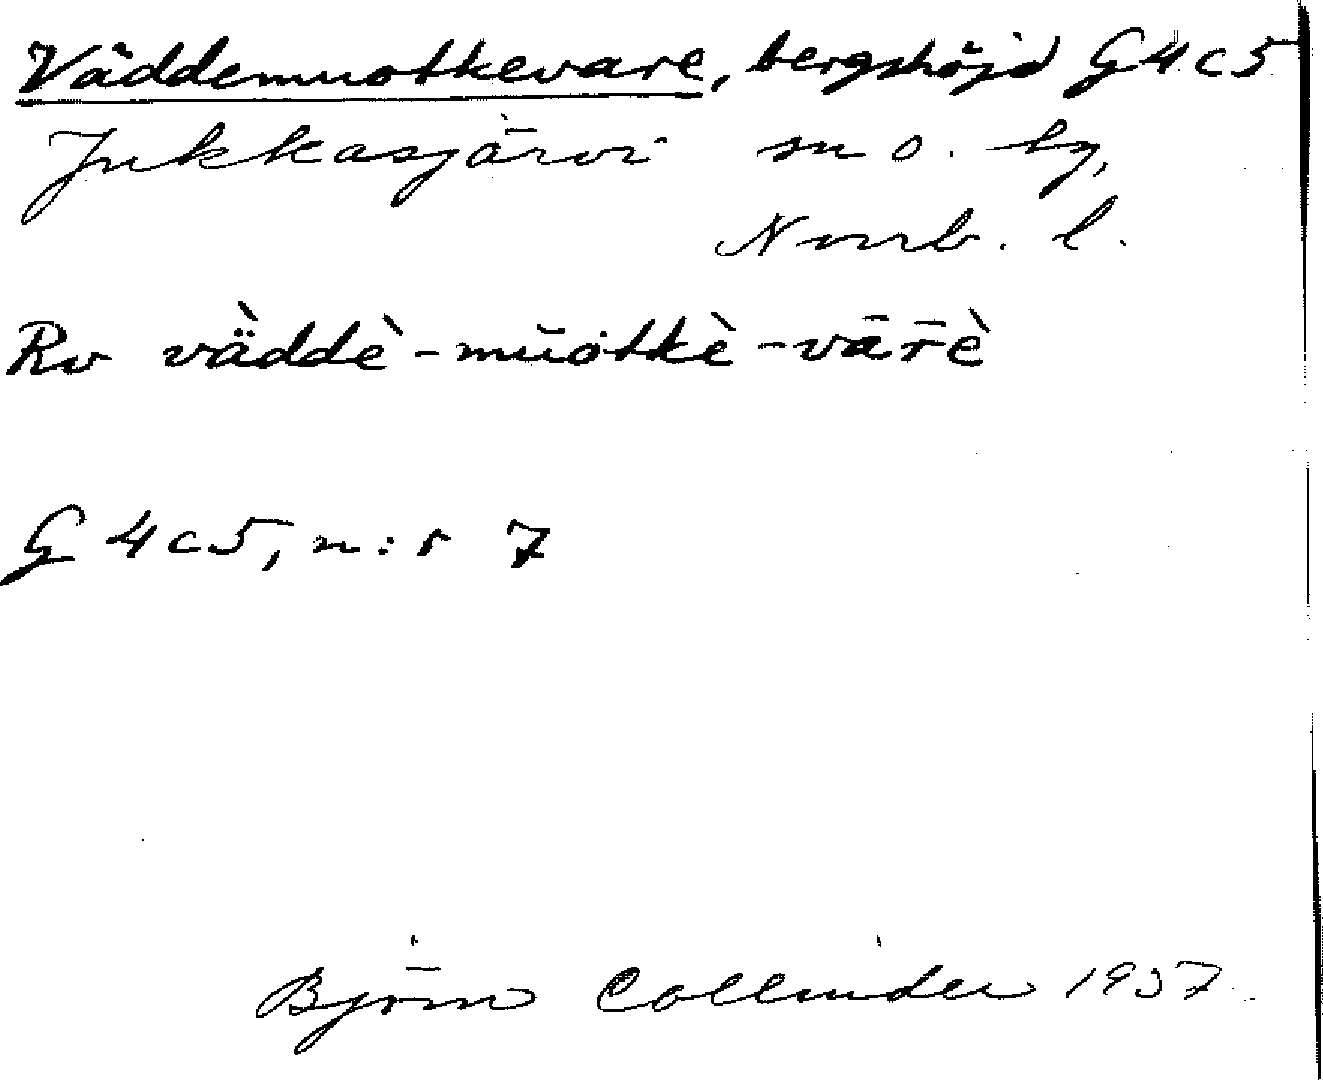 Väddemuotkevare, bergshöjd G4c5
Jukkasjärvi sn o. by,
Norrb. l.
Rv vä̀ddè-mūotkè-vār̄è
G 4c5, n:r 7
Björn Collinder 1957